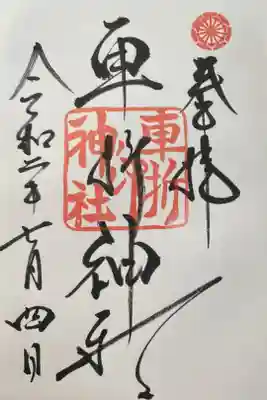 奉拝
車折神社
車折神社
令和二年七月四日